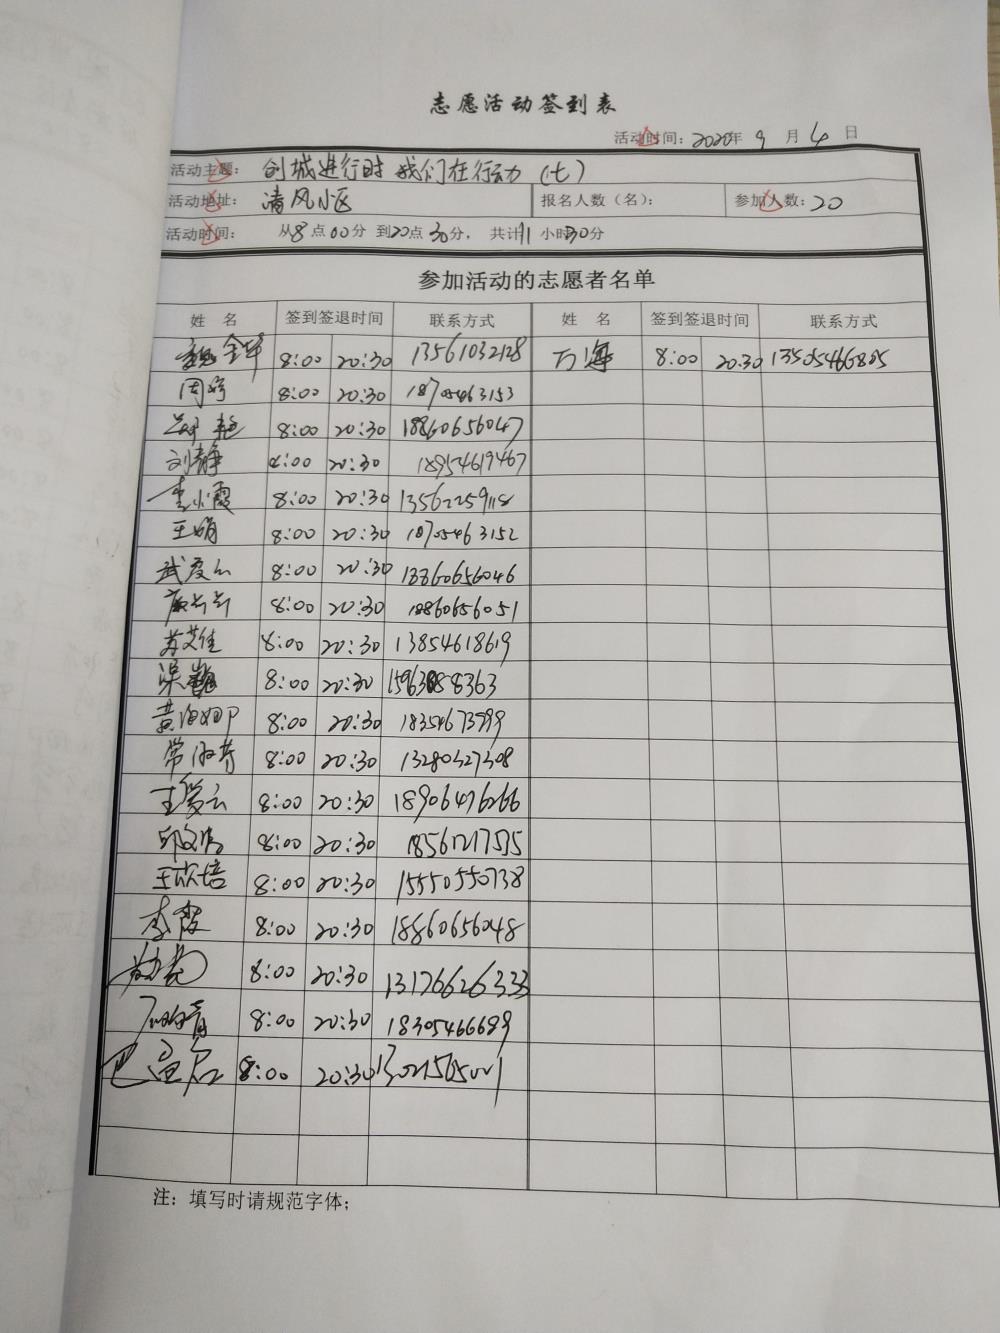 志愿活动签到表
活动时间：2020年9月4日
活动主题：创城进行时 我们在行动（七）
活动地址：清风小区 报名人数（名）： 参加人数：20
活动时间：从8点00分到20点30分，共计11小时30分
参加活动的志愿者名单
姓 名 签到签退时间 联系方式 姓 名 签到签退时间 联系方式
魏金华 8:00 20:30 13561032128 万海 8:00 20:30 13505466805
周宁 8:00 20:30 18705463153
郑艳 8:00 20:30 18860656047
刘静 8:00 20:30 18954619467
李小霞 8:00 20:30 13562259118
王娟 8:00 20:30 18705463152
武爱云 8:00 20:30 18860656046
8:00 20:30 18860656051
苏艾佳 8:00 20:30 13854618619
渠 8:00 20:30 15963888363
黄 8:00 20:30 18354673999
常淑芳 8:00 20:30 13280327308
王爱云 8:00 20:30 18906476266
邱文 8:00 20:30 18561217535
王欣培 8:00 20:30 15550550738
李霞 8:00 20:30 18860656048
8:00 20:30 13176626333
8:00 20:30 18305466689
巴 8:00 20:30
注：填写时请规范字体；